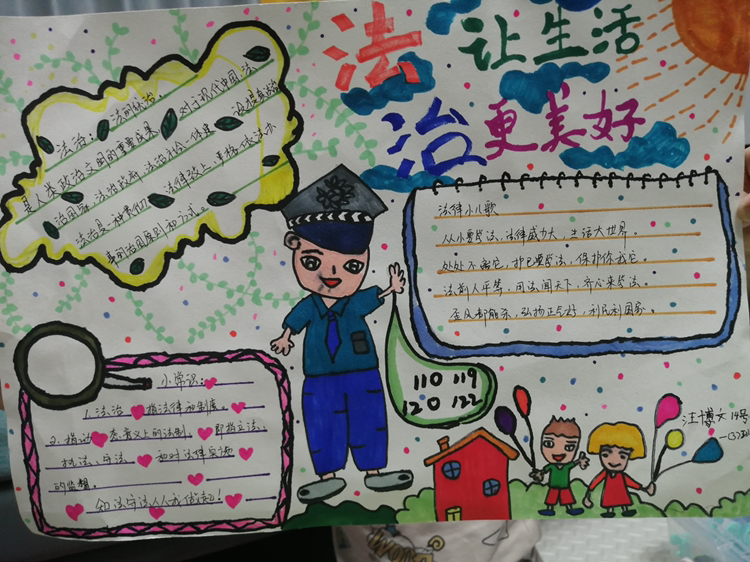 法治
让生活
更美好
法治：法的统治。
对于现代中国，法
是人类政治文明的重要成果
治国家、法治政府、法治社会一体建
法律至上、严格依法办
法治是一种贵
治国原则和方式。
法律小儿歌
从小要学法，法律威力大，生活大世界。
处处不离它，护己要学法，保护你我它。
法前人平等，司法闻天下，齐心来学法
弘扬正能
利民利国家。
小常识：
1.法治 指法律和制度。
2.
意义上的法制 即指立法、
执法、守法 和对法律实施
的监督。
知法守法人人我做起！
110 119
120 122
汪博文 14号